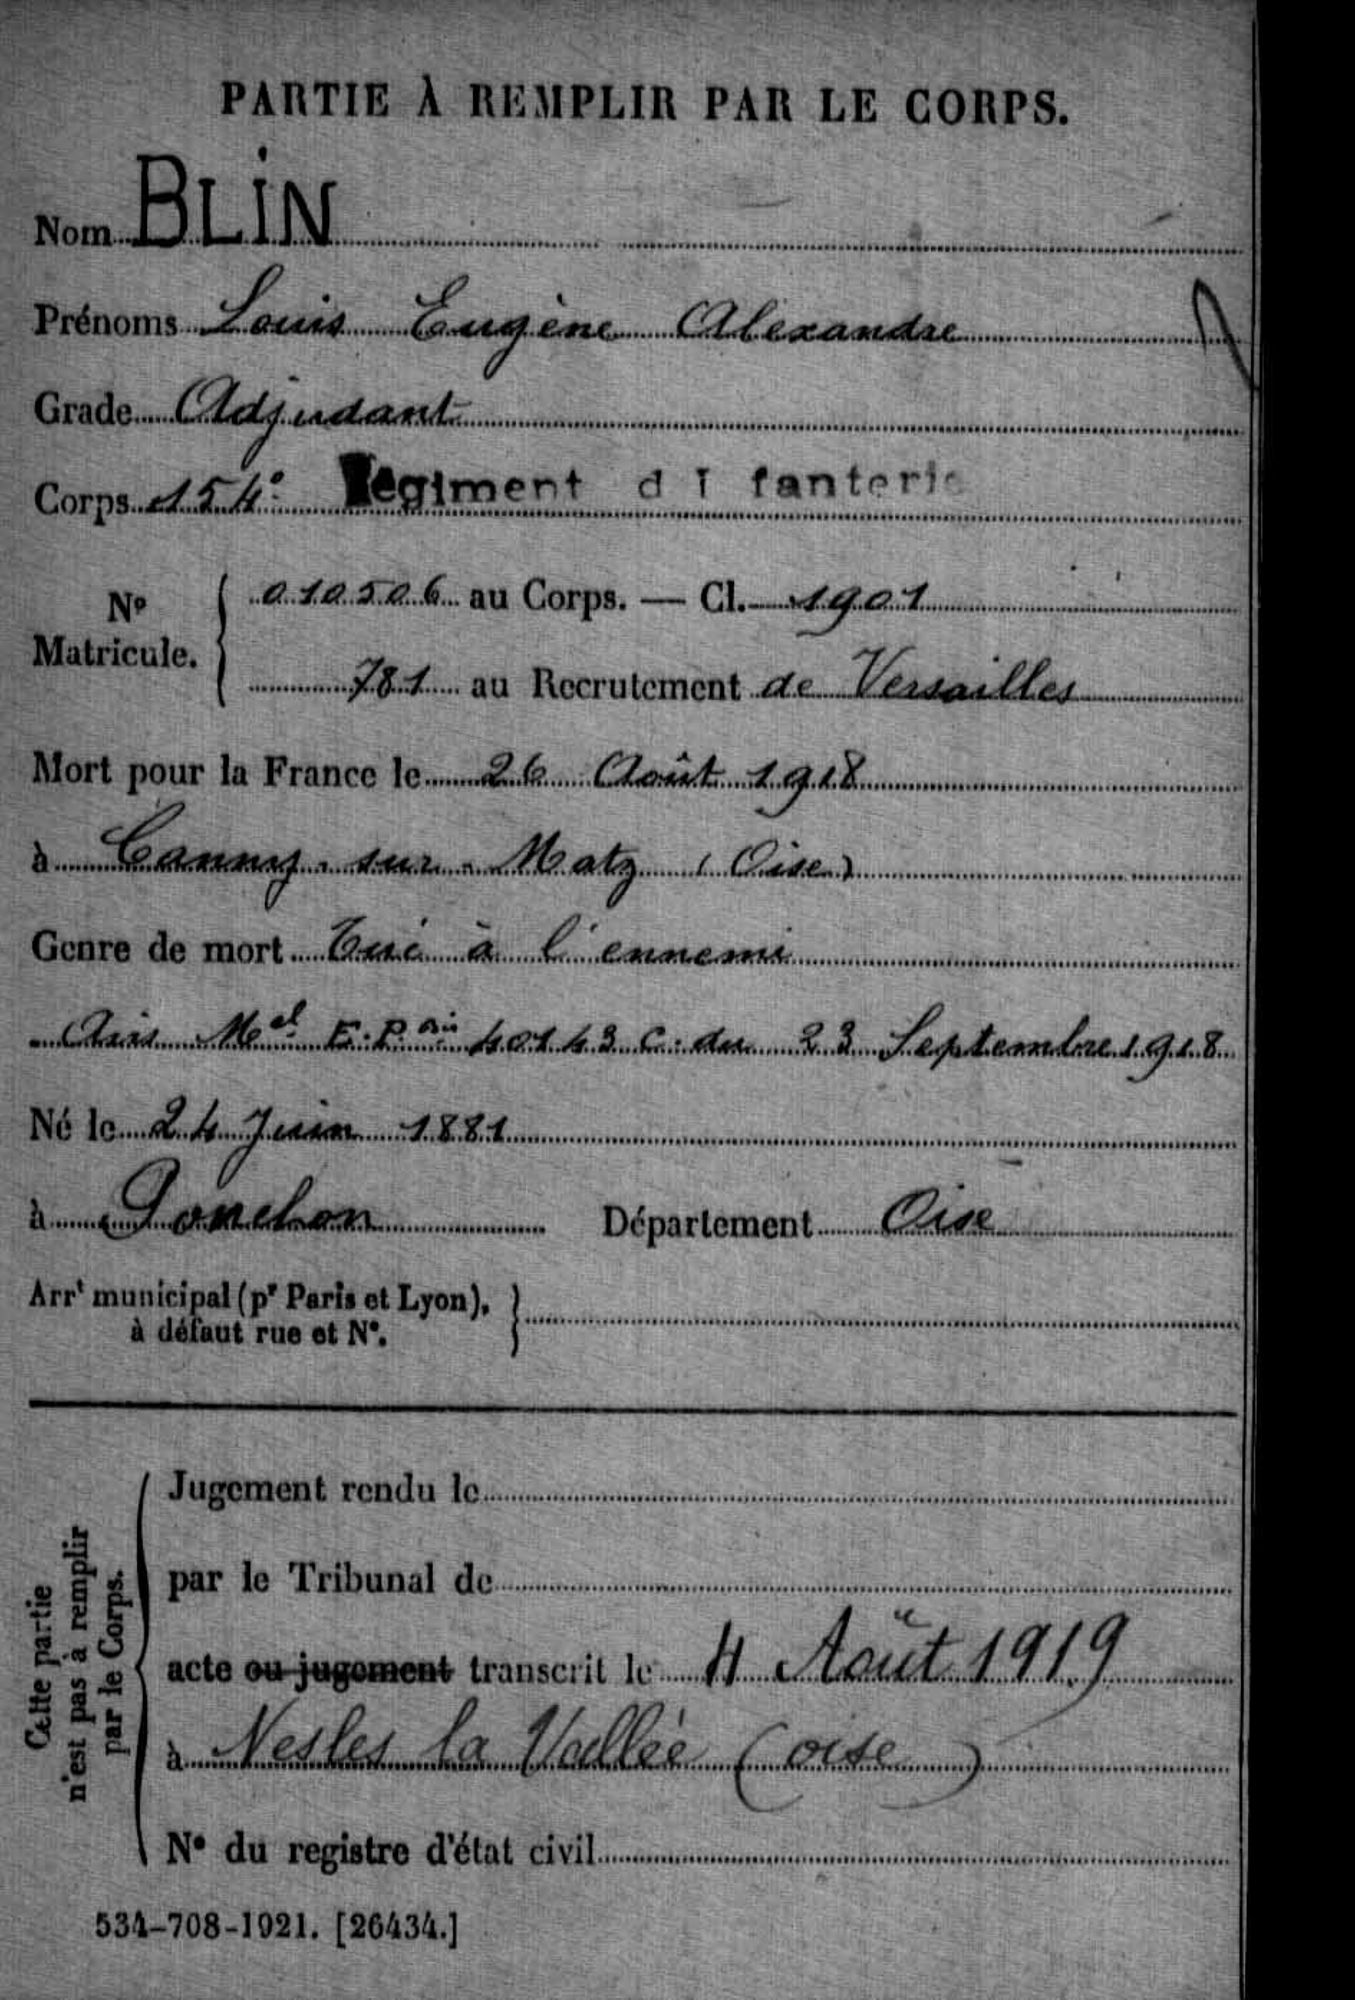 PARTIE À REMPLIR PAR LE CORPS.
Nom BLIN
Prénoms Louis Eugène Alexandre
Grade Adjudant
Corps 154e Régiment d'I fanterie
No Matricule. 010506 au Corps. — Cl. 1901
781 au Recrutement de Versailles
Mort pour la France le 26 Août 1918
à Canny-sur-Matz (Oise)
Genre de mort Tué à l'ennemi
Avis Mel 40143 C. du 23 Septembre 1918
Né le 24 Juin 1881
à Ponchon Département Oise
Arrt municipal (pr Paris et Lyon),
à défaut rue et No.
Cette partie
n'est pas à remplir
par le Corps.
Jugement rendu le
par le Tribunal de
acte ou jugement transcrit le 4 Août 1919
à Nesles la Vallée (oise)
No du registre d'état civil
534-708-1921. [26434.]